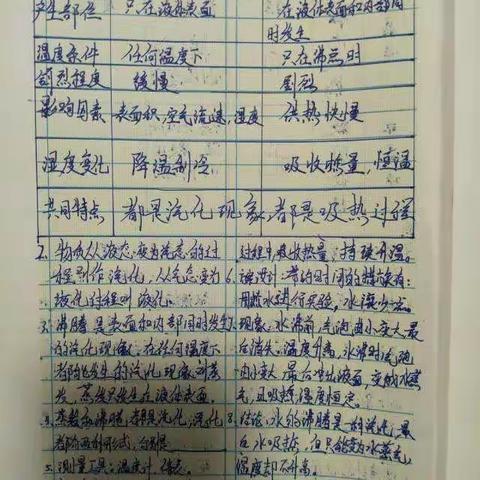 产生部位 只在液体表面 在液体表面和内部同时发生
温度条件 任何温度下 只在沸点时
剧烈程度 缓慢 剧烈
影响因素 表面积,空气流速,温度 供热快慢
温度变化 降温制冷 吸收热量,恒温
共同特点 都是汽化现象,都是吸热过程
2. 物质从液态变为汽态的过
程叫作汽化,从气态变为
液化过程叫液化。
3. 沸腾是表面和内部同时发生
的汽化现象。在任何温度下
都能发生的汽化现象叫蒸
发,蒸发只发生在液体表面。
4. 蒸发和沸腾都是汽化,汽化
的两种形式,
5. 测量工具:温度计、
过程中吸收热量,持续升温。
6.
用 水进行实验,水
7. 现象:水沸前气泡由小变大最
后消失,温度升高,水沸时气泡
由小变大,最后冒出液面,变成水蒸
气,且吸热温度恒定。
8. 结论:水的沸腾是 汽化,
后水吸热,但只能变为水蒸气,
温度却不升高。